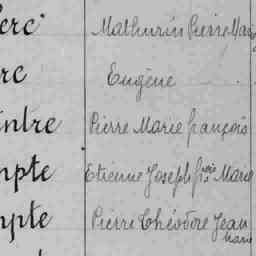 erc Mathurin Pierre Marie
rc Eugène
intre Pierre Marie françois
mpte Etienne Joseph frois Marie
mpte Pierre Théodore Jean
Marie